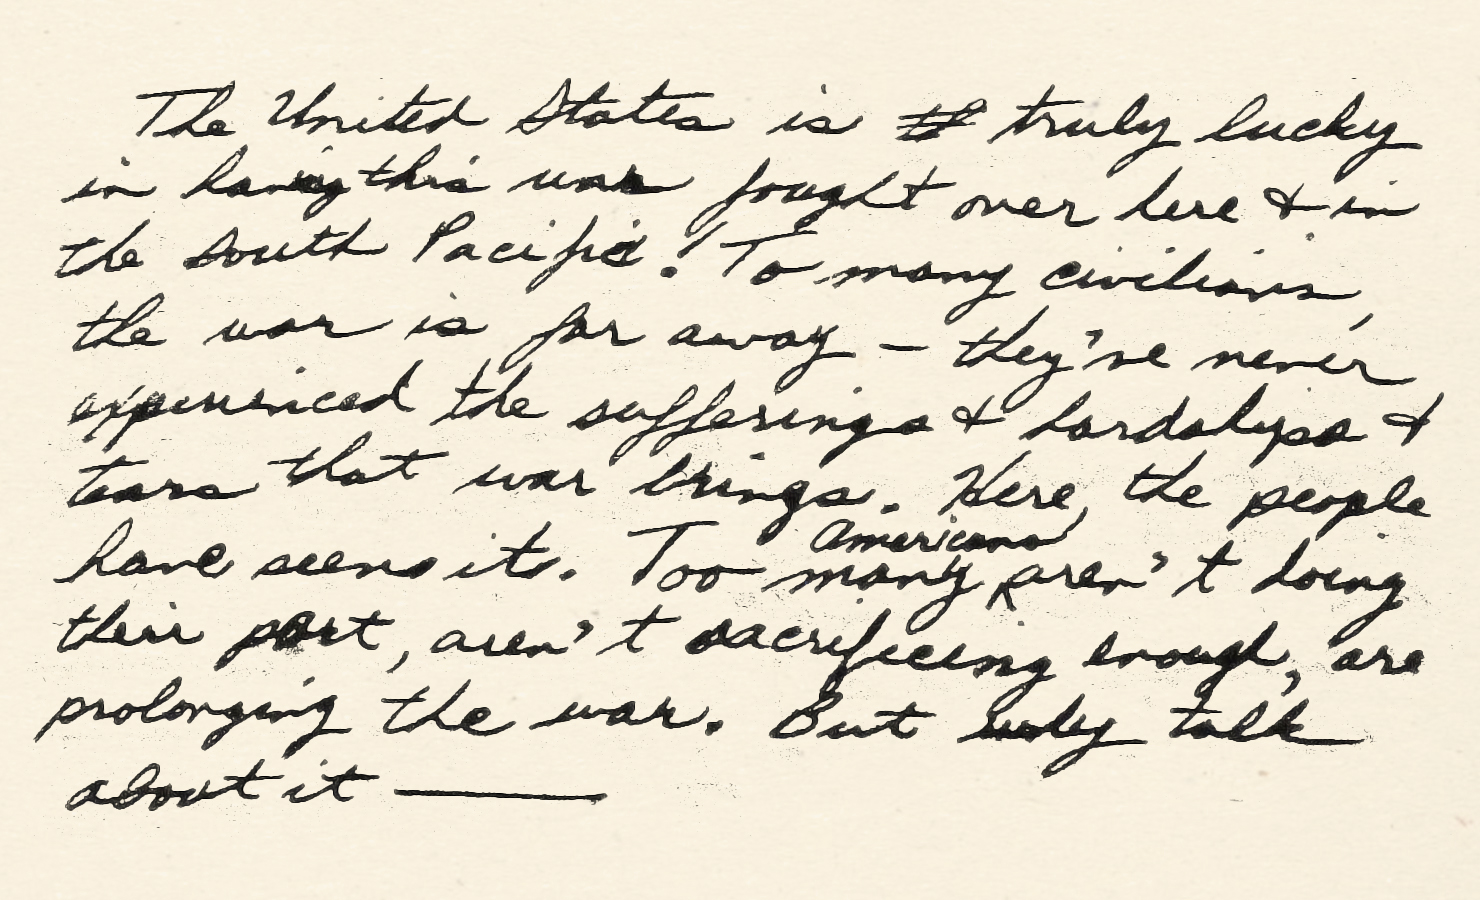 The United States is truly lucky
in having this war fought over here & in
the South Pacific! To many civilians,
the war is far away — they've never
experienced the sufferings & hardships &
tears that war brings. Here, the people
have seen it. Too many Americans aren't doing
their part, aren't sacrificing enough, are
prolonging the war. But why talk
about it —